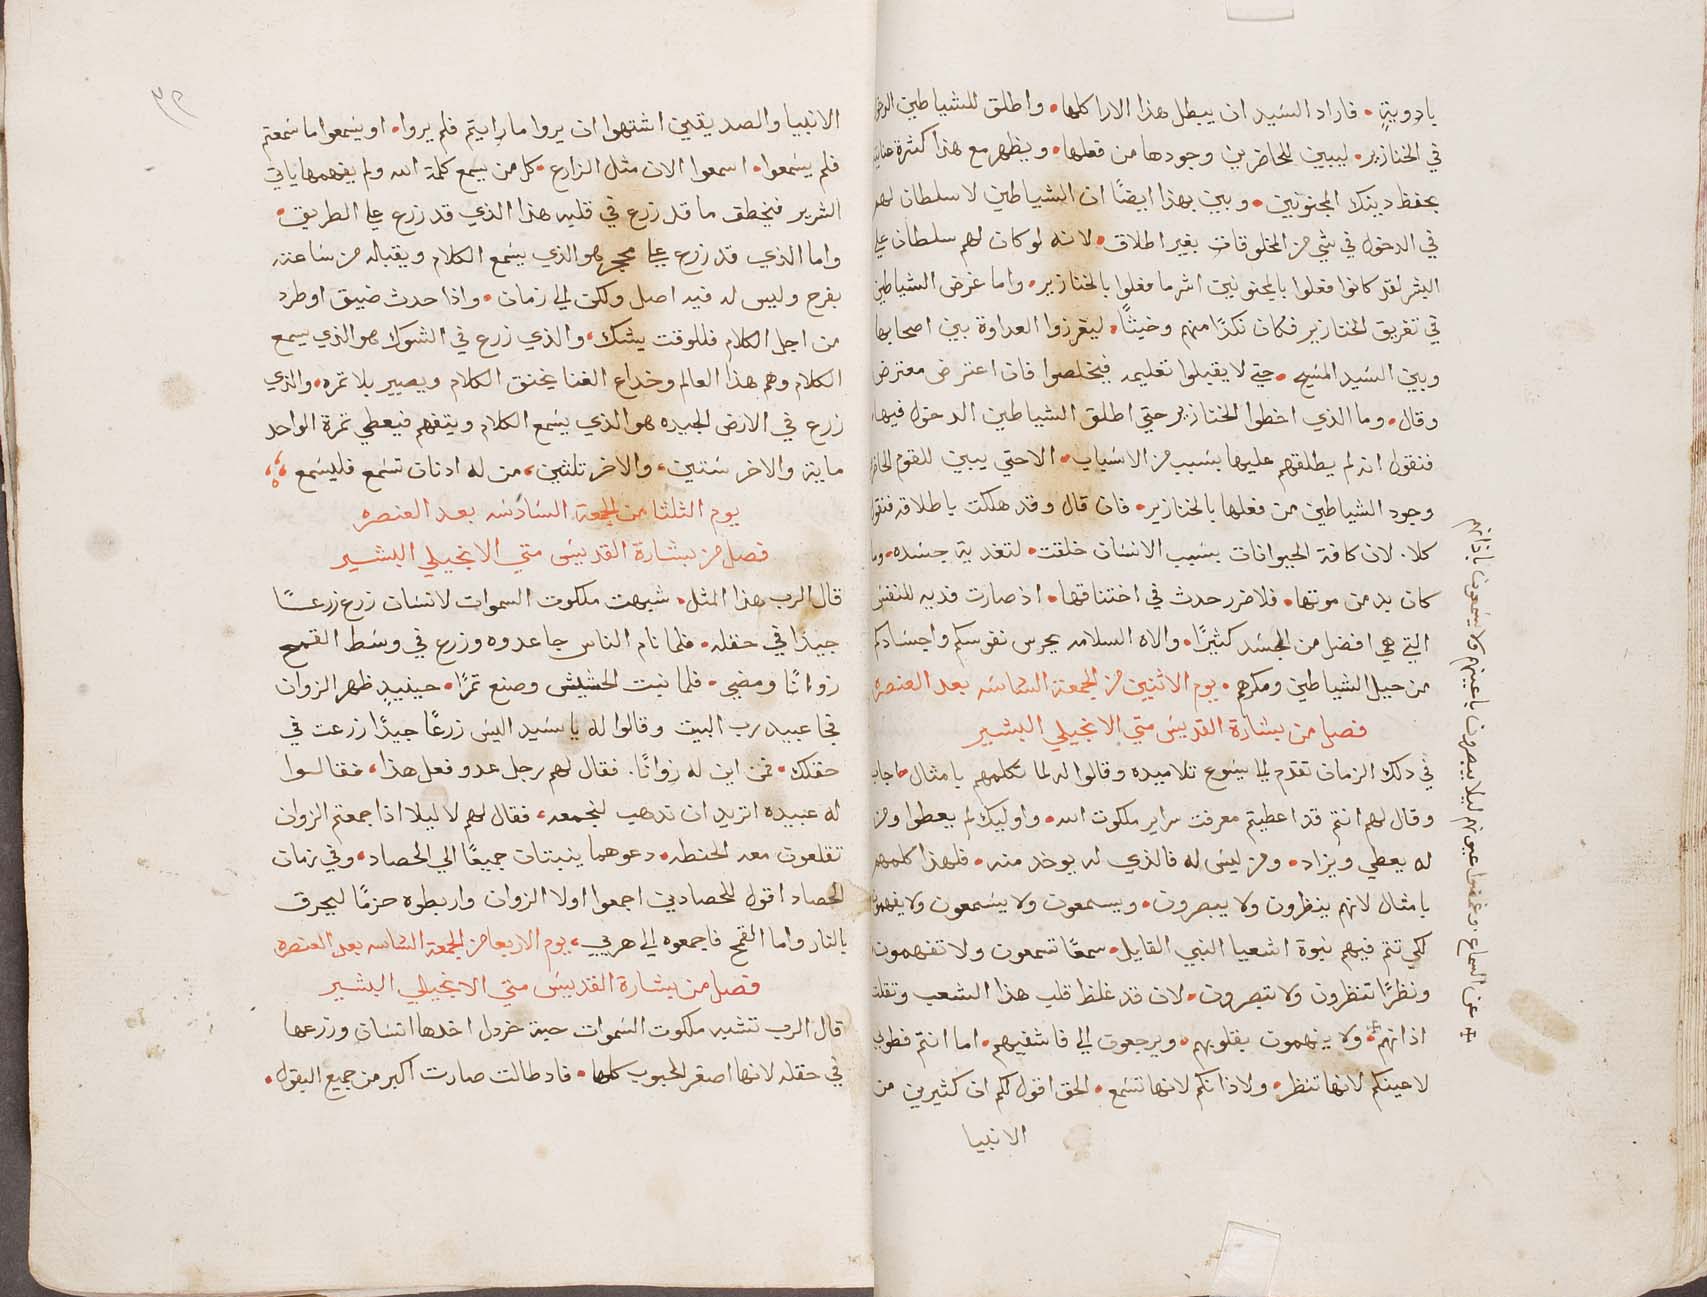 بادوية • فاراد السيد ان يبطل هذا الارا كلها • واطلق للشياطين
في الخنازير • ليبين للحاضرين وجودها من فعلها • ويظهر مع هذا كثرة عنايته
بحفظ دينك المجنونين • وبين بهذا ايضًا ان الشياطين لا سلطان لهم
في الدخول في شي من المخلوقات بغير اطلاق • لانه لو كان لهم سلطان علي
البشر لقد كانوا فعلوا بالمجنونين اشر ما فعلوا بالخنازير • واما غرض الشياطين
في تغريق الخنازير فكان نكدًا منهم وخبثًا • ليغرزوا العداوة بين اصحابها
وبين السيد المسيح • حتي لا يقبلوا تعليمه فيخلصوا فان اعترض معترض
وقال • وما الذي اخطوا الخنازير حتي اطلق الشياطين الدخول فيها
فنقول انه لم يطلقهم عليها بسبب من الاسباب • الا حتي يبين للقوم
وجود الشياطين من فعلها بالخنازير • فان قال وقد هلكت باطلاقه فنقول
كلا • لان كافة الحيوانات بسبب الانسان خلقت • لتغدية جسده •
كان بد من موتها • فلا ضرر حدث في اختناقها • اذ صارت فديه للنفس
التي هي افضل من الجسد كثيرًا • والاه السلامه يحرس نفوسكم واجسادكم
من حيل الشياطين ومكرهم • يوم الاثنين من الجمعة السادسه بعد العنصره
فصل من بشارة القديس متي الانجيلي البشير
في دلك الزمان تقدم الي يسوع تلاميده وقالوا له لما تكلمهم بامثال • اجاب
وقال لهم انتم قد اعطيتم معرفت سراير ملكوت الله • واوليك لم يعطوا ومن
له يعطي ويزاد • ومن ليس له فالذي له يوخد منه • فلهذا كلمهم
بامثال لانهم ينظرون ولا يبصرون • ويسمعون ولا يسمعون ولا يفهمون
لكي تتم فيهم نبوة اشعيا النبي القايل • سمعًا تسمعون ولا تفهمون
ونظرًا تنظرون ولا تبصرون • لان قد غلظ قلب هذا الشعب وثقلت
اذانهم • ولا يفهمون بقلوبهم • ويرجعون الي فاشفيهم • اما انتم فطوبي
لاعينكم لانها تنظر • ولاذانكم لانها تسمع • الحق اقول لكم ان كثيرين من
الانبيا
✠ عن السماع • وغمضوا عيونهم ليلا يبصرون باعينهم ولا يسمعون باذانهم
الانبيا والصديقين اشتهوا ان يروا ما رايتم فلم يروا • او يسمعوا ما سمعتم
فلم يسمعوا • اسمعوا الان مثل الزارع • كل من يسمع كلمة الله ولم يفهمها ياتي
الشرير فيخطف ما قد زرع في قلبه هذا الذي قد زرع علي الطريق •
واما الذي قد زرع علي محجر هو الذي يسمع الكلام ويقبله من ساعته
بفرح وليس له فيه اصل ولكن الي زمان • واذا حدث ضيق او طرد
من اجل الكلام فللوقت يشك • والذي زرع في الشوك هو الذي يسمع
الكلام وهم هذا العالم وخداع الغنا يخنق الكلام ويصير بلا ثمره • والذي
زرع في الارض الجيده هو الذي يسمع الكلام ويتفهم فيعطي ثمرة الواحد
ماية والاخر ستين • والاخر تلتين • من له ادنان تسمع فليسمع
يوم الثلثا من الجمعة السادسه بعد العنصره
فصل من بشارة القديس متي الانجيلي البشير
قال الرب هذا المثل • شبهت ملكوت السموات لانسان زرع زرعًا
جيدًا في حقله • فلما نام الناس جا عدوه وزرع في وسط القمح
زوانًا ومضي • فلما نبت الحشيش وصنع ثمرًا • حينيد ظهر الزوان
فجا عبيد رب البيت وقالوا له يا سيد اليس زرعًا جيدًا زرعت في
حقلك • فمن اين له زوانًا • فقال لهم رجل عدو فعل هذا • فقالوا
له عبيده اتريد ان ندهب لنجمعه • فقال لهم لا ليلا اذا جمعتم الزوان
تقلعون معه الحنطه • دعوهما ينبتان جميعًا الي الحصاد • وفي زمان
الحصاد اقول للحصادين اجمعوا اولا الزوان واربطوه حزمًا ليحرق
بالنار واما القمح فاجمعوه الي هريي • يوم الاربعا من الجمعة السادسه بعد العنصره
فصل من بشارة القديس متي الانجيلي البشير
قال الرب تتشبه ملكوت السموات حبة خردل اخدها انسان وزرعها
في حقله لانها اصغر الحبوب كلها • فاد طالت صارت اكبر من جميع البقول •